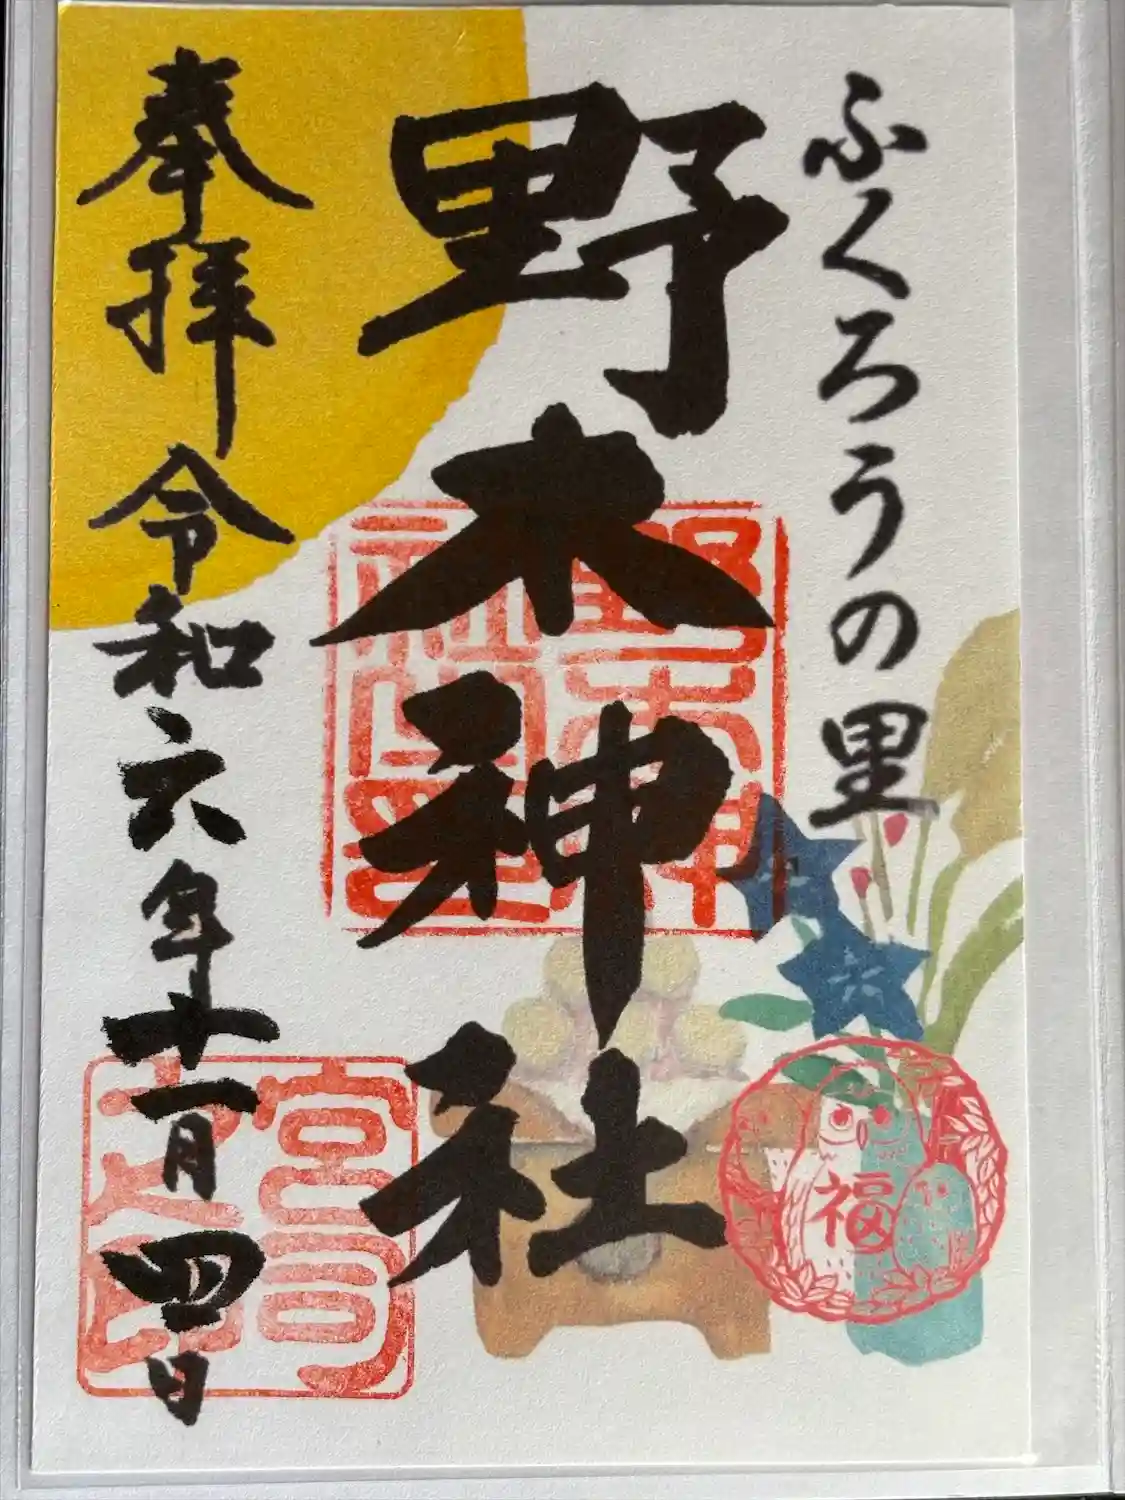 ふくろうの里
野木神社
奉拝 令和六年十一月四日
野木神社印
宮司之印
福